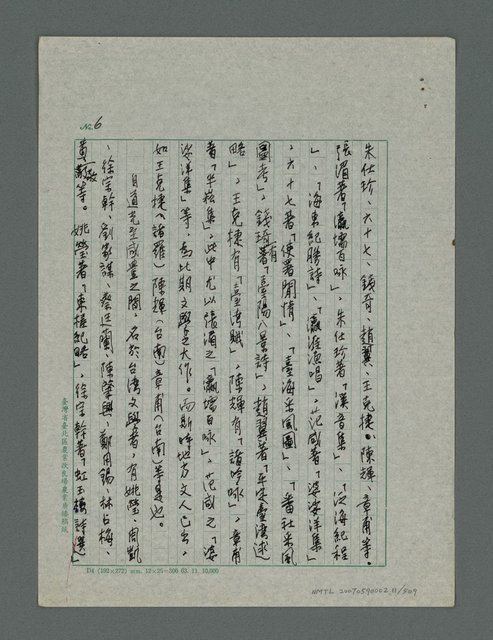 No. 6
朱仕玠、六十七、錢琦、趙翼、王克捷、陳輝、章甫等。
張湄著「瀛壖百咏」，朱仕玠著「溪音集」、「泛海紀程
」、「海東紀勝詩」、「瀛涯漁唱」，范咸著「婆娑洋集」
，六十七著「使署閒情」、「臺海采風圖」、「番社采風
圖考」，錢琦著有「臺陽八景詩」，趙翼著「平定臺灣述
略」，王克捷有「臺灣賦」，陳輝有「諸吟咏」，章甫
著「半崧集」，此中尤以張湄之「瀛壖百咏」，范咸之「婆
娑洋集」等，為此期文學最大作。而斯時地方文人已出，
如王克捷（諸羅）陳輝（台南）章甫（台南）等是也。
自道光至咸豐之間，名於台灣文學者，有姚瑩、周凱
、徐宗幹、劉家謀、蔡廷蘭、陳肇興、鄭用錫、林占梅、
黃敬等。姚瑩著「東槎紀略」，徐宗幹著「虹玉樓詩選」
臺灣省臺北區農業改良場農業廣播稿紙
D4 (192×272) mm. 12×25=300 63. 11. 10,000
NMTL 20070590002.11/509